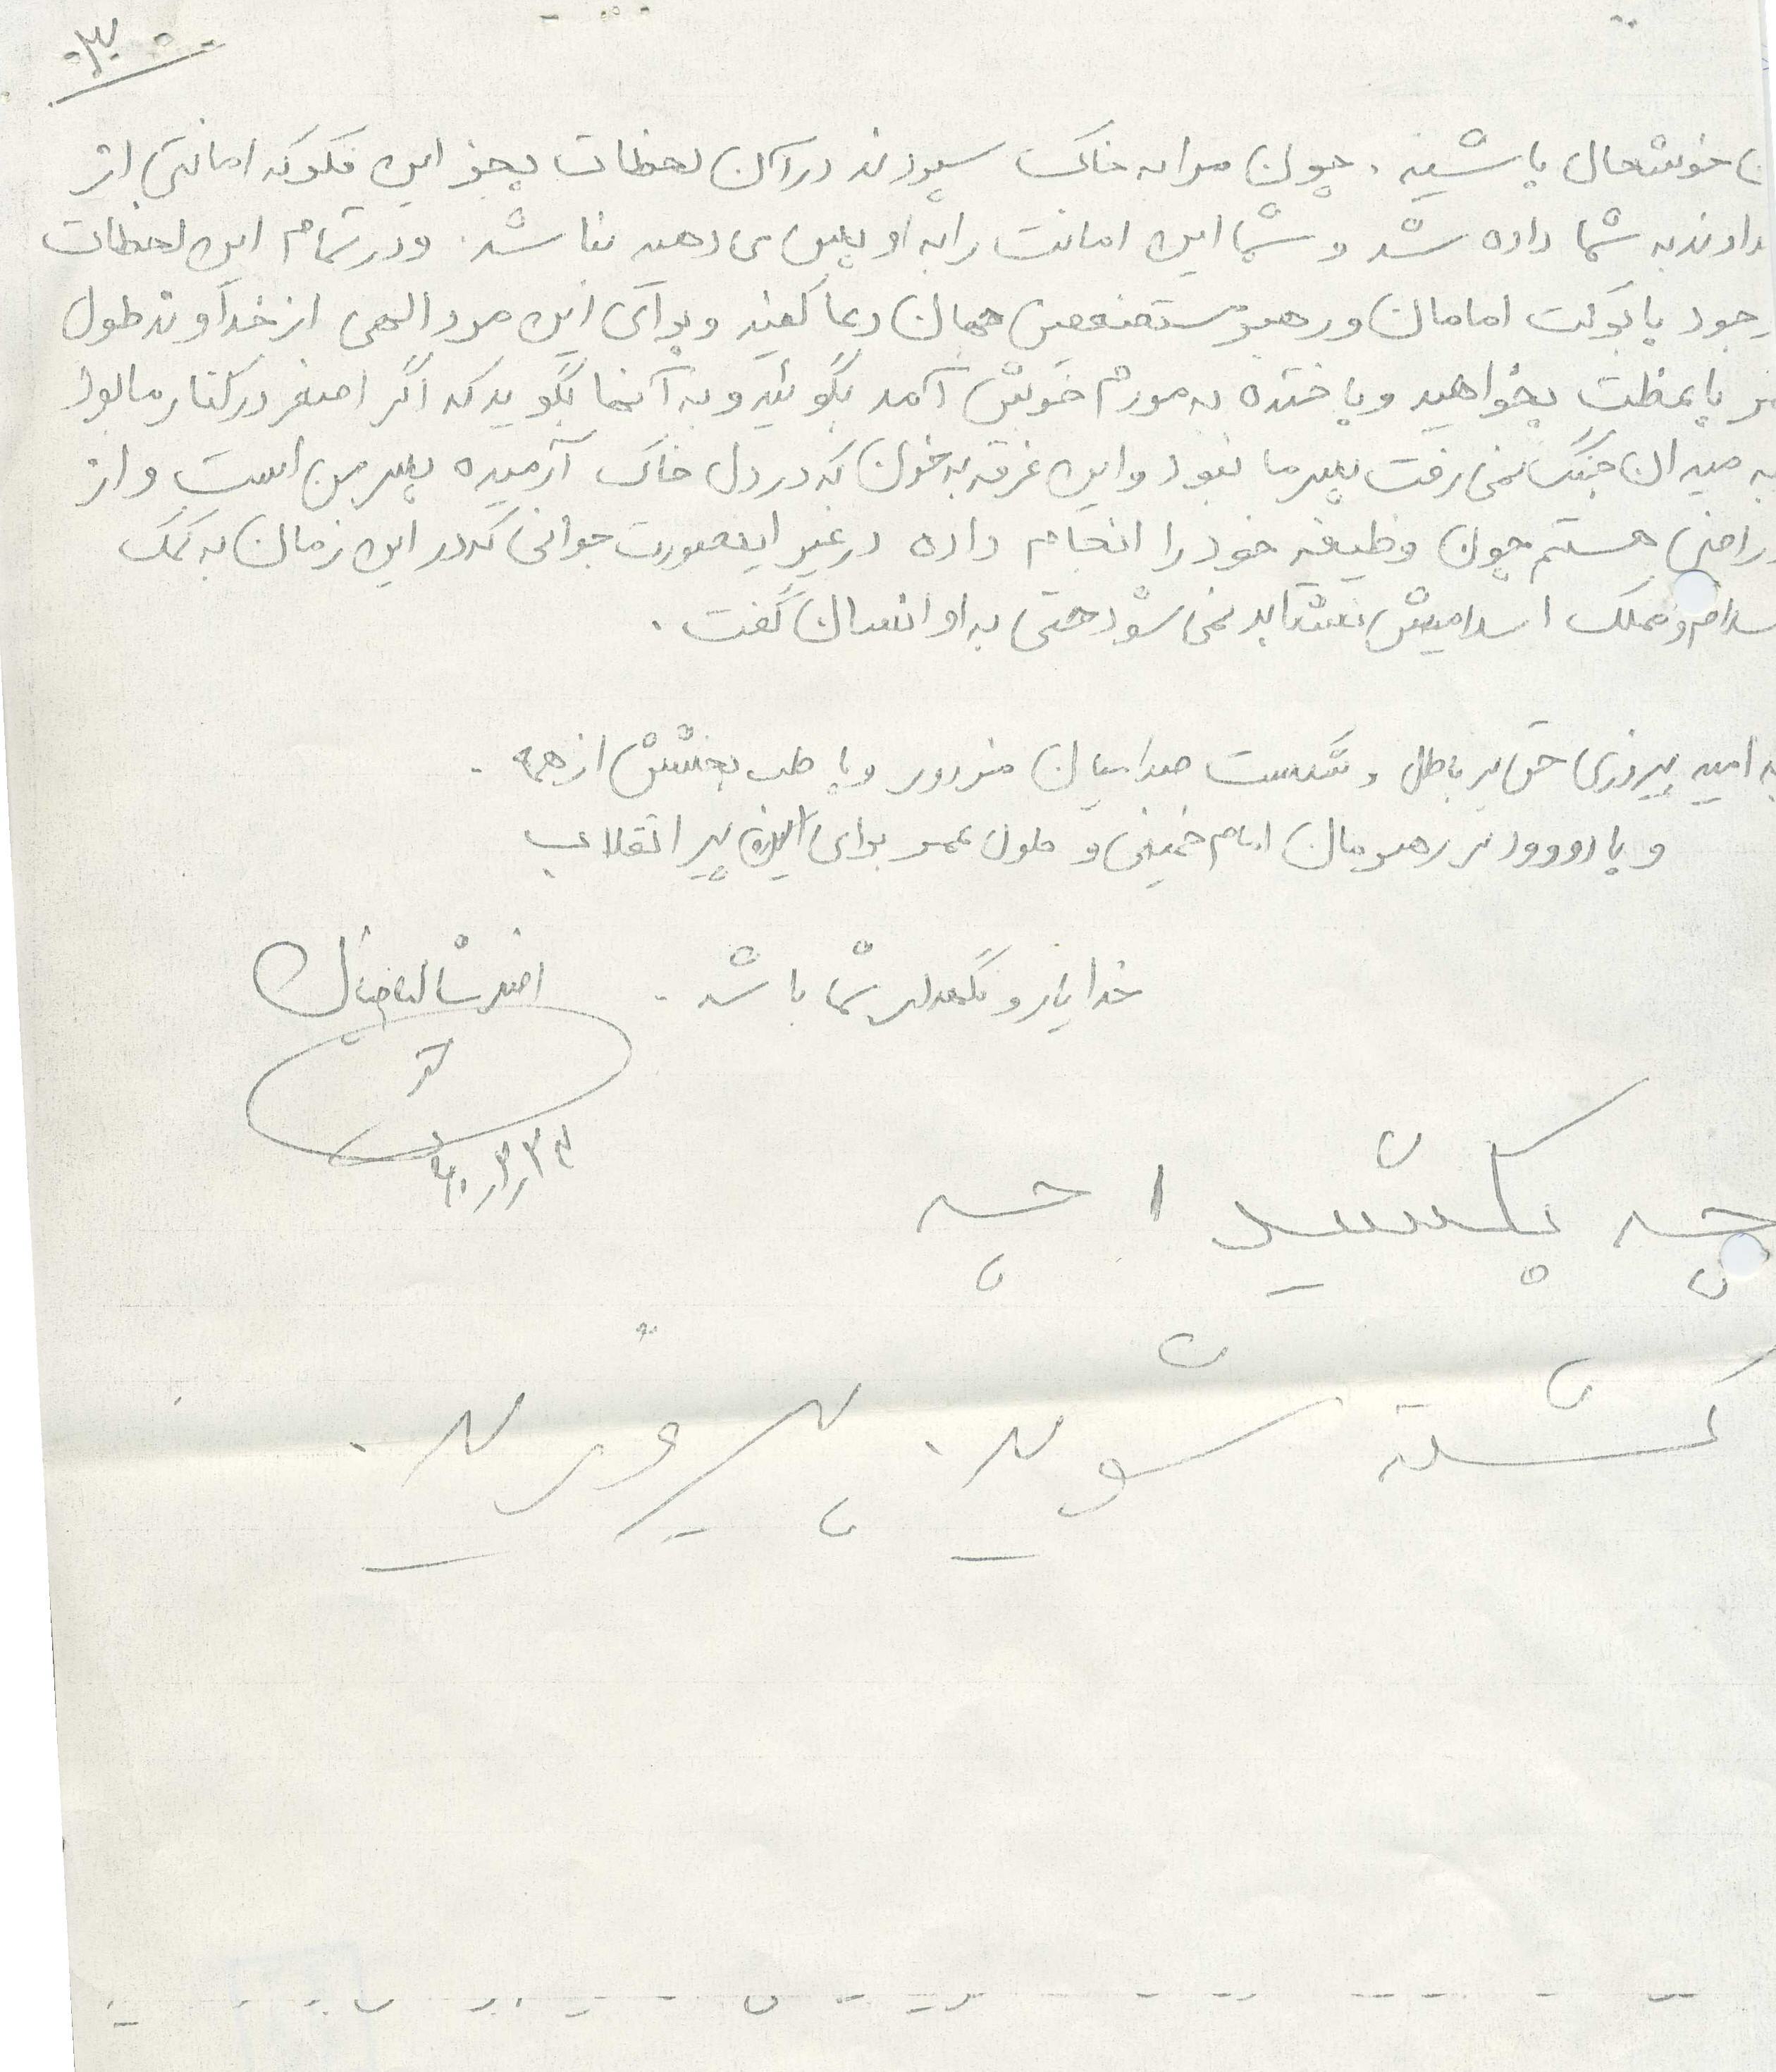 -۳-
خوشحال باشید. چون مرا به خاک سپردند در آن لحظات بجز این فکر که امانتی از
به شما داده شد و شما این امانت را به او پس می دهید نباشد. و در تمام این لحظات
با برکت اماممان و رهبر مستضعفین جهان دعا کنید و برای این مرد الهی از خداوند طول
با عظت بخواهید و با خنده به مردم خوش آمد بگوئید و به آنها بگوید که اگر اصغر در کنار ما بود
به میدان جنگ نمی رفت پسر ما نبود و این غرقه به خون که در دل خاک آرمیده پسر من است و از
راضی هستم چون وظیفه خود را انجام داده در غیر اینصورت جوانی که در این زمان به کمک
و مملکت اسلامیش نشتابد نمی شود حتی به او انسان گفت.
به امید پیروزی حق بر باطل و شکست صدامیان مزدور و با طلب بخشش از همه.
و با دوورد بر رهبرمان امام خمینی و طول عمر برای این پیر انقلاب
خدا یار و نگهدار شما باشد.
اصغر
چه بکشید ا چه
کشته شوید. پیروزید.